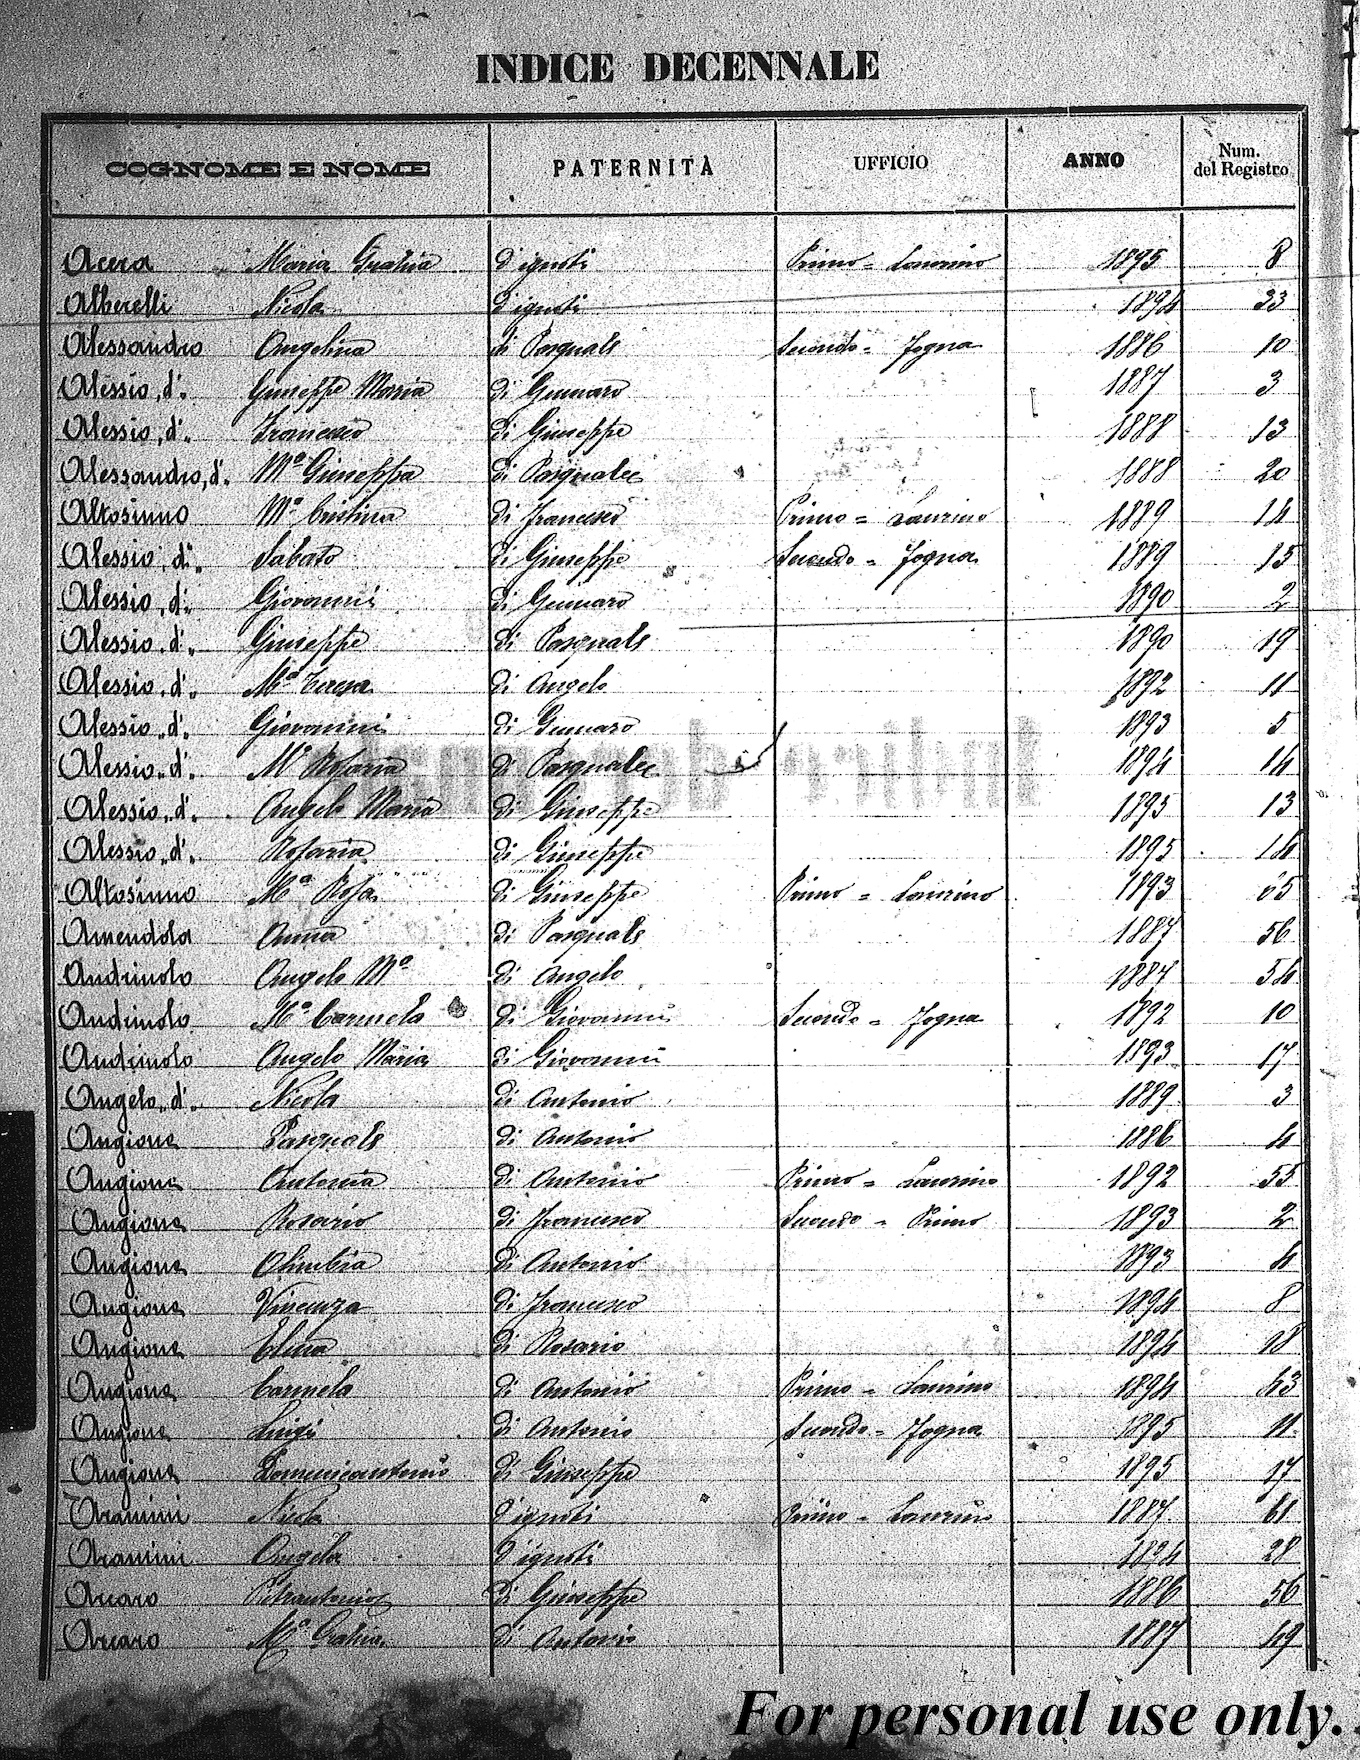 INDICE DECENNALE
COGNOME E NOME PATERNITÀ UFFICIO ANNO Num. del Registro
Acera Maria Grazia d'ignoti Primo = Laurino 1895 8
Alberelli Nicola d'ignoti 1894 33
Alessandro Angelina di Pasquale Secondo = Fogna 1886 10
Alessio, d'. Giuseppe Maria di Gennaro 1887 3
Alessio, d'. Francesco di Giuseppe 1888 13
Alessandro, d'. Mª Giuseppa di Pasquale 1888 20
Altosinno Mª Cristina di Francesco Primo = Laurino 1889 14
Alessio, d'. Sabato di Giuseppe Secondo = Fogna 1889 15
Alessio, d'. Giovanni di Gennaro 1890 2
Alessio, d'. Giuseppe di Pasquale 1890 19
Alessio, d'. Mª Teresa di Angelo 1892 11
Alessio, d'. Giovanni di Gennaro 1893 5
Alessio, d'. Mª Rosaria di Pasquale 1894 14
Alessio, d'. Angelo Maria di Giuseppe 1895 13
Alessio, d'. Rosaria di Giuseppe 1895 14
Altosinno Mª Rosa di Giuseppe Primo = Laurino 1893 65
Amendola Anna di Pasquale 1887 56
Andrinolo Angelo Mª di Angelo 1887 54
Andrinolo Mª Carmela di Giovanni Secondo = Fogna 1892 10
Andrinolo Angelo Maria di Giovanni 1893 17
Angelo, d'. Nicola di Antonio 1889 3
Angione Pasquale di Antonio 1886 4
Angione Antonia di Antonio Primo = Laurino 1892 55
Angione Rosario di Francesco Secondo = Primo 1893 2
Angione Olimbia di Antonio 1893 4
Angione Vincenza di Francesco 1894 8
Angione Elena di Rosario 1894 18
Angione Carmela di Antonio Primo = Laurino 1894 43
Angione Luigi di Antonio Secondo = Fogna 1895 11
Angione Domenicantonio di Giuseppe 1895 17
Aramini Nicola d'ignoti Primo = Laurino 1887 61
Aramini Angela d'ignoti 1894 28
Arcaro Pietrantonio di Giuseppe 1886 56
Arcaro Mª Grazia di Antonio 1887 49
For personal use only.